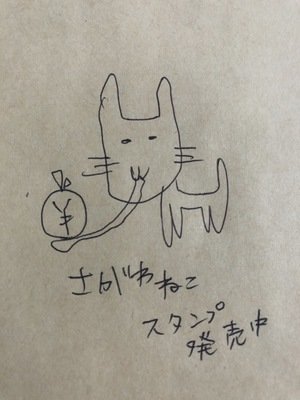 ¥
さがわねこ
スタンプ
発売中